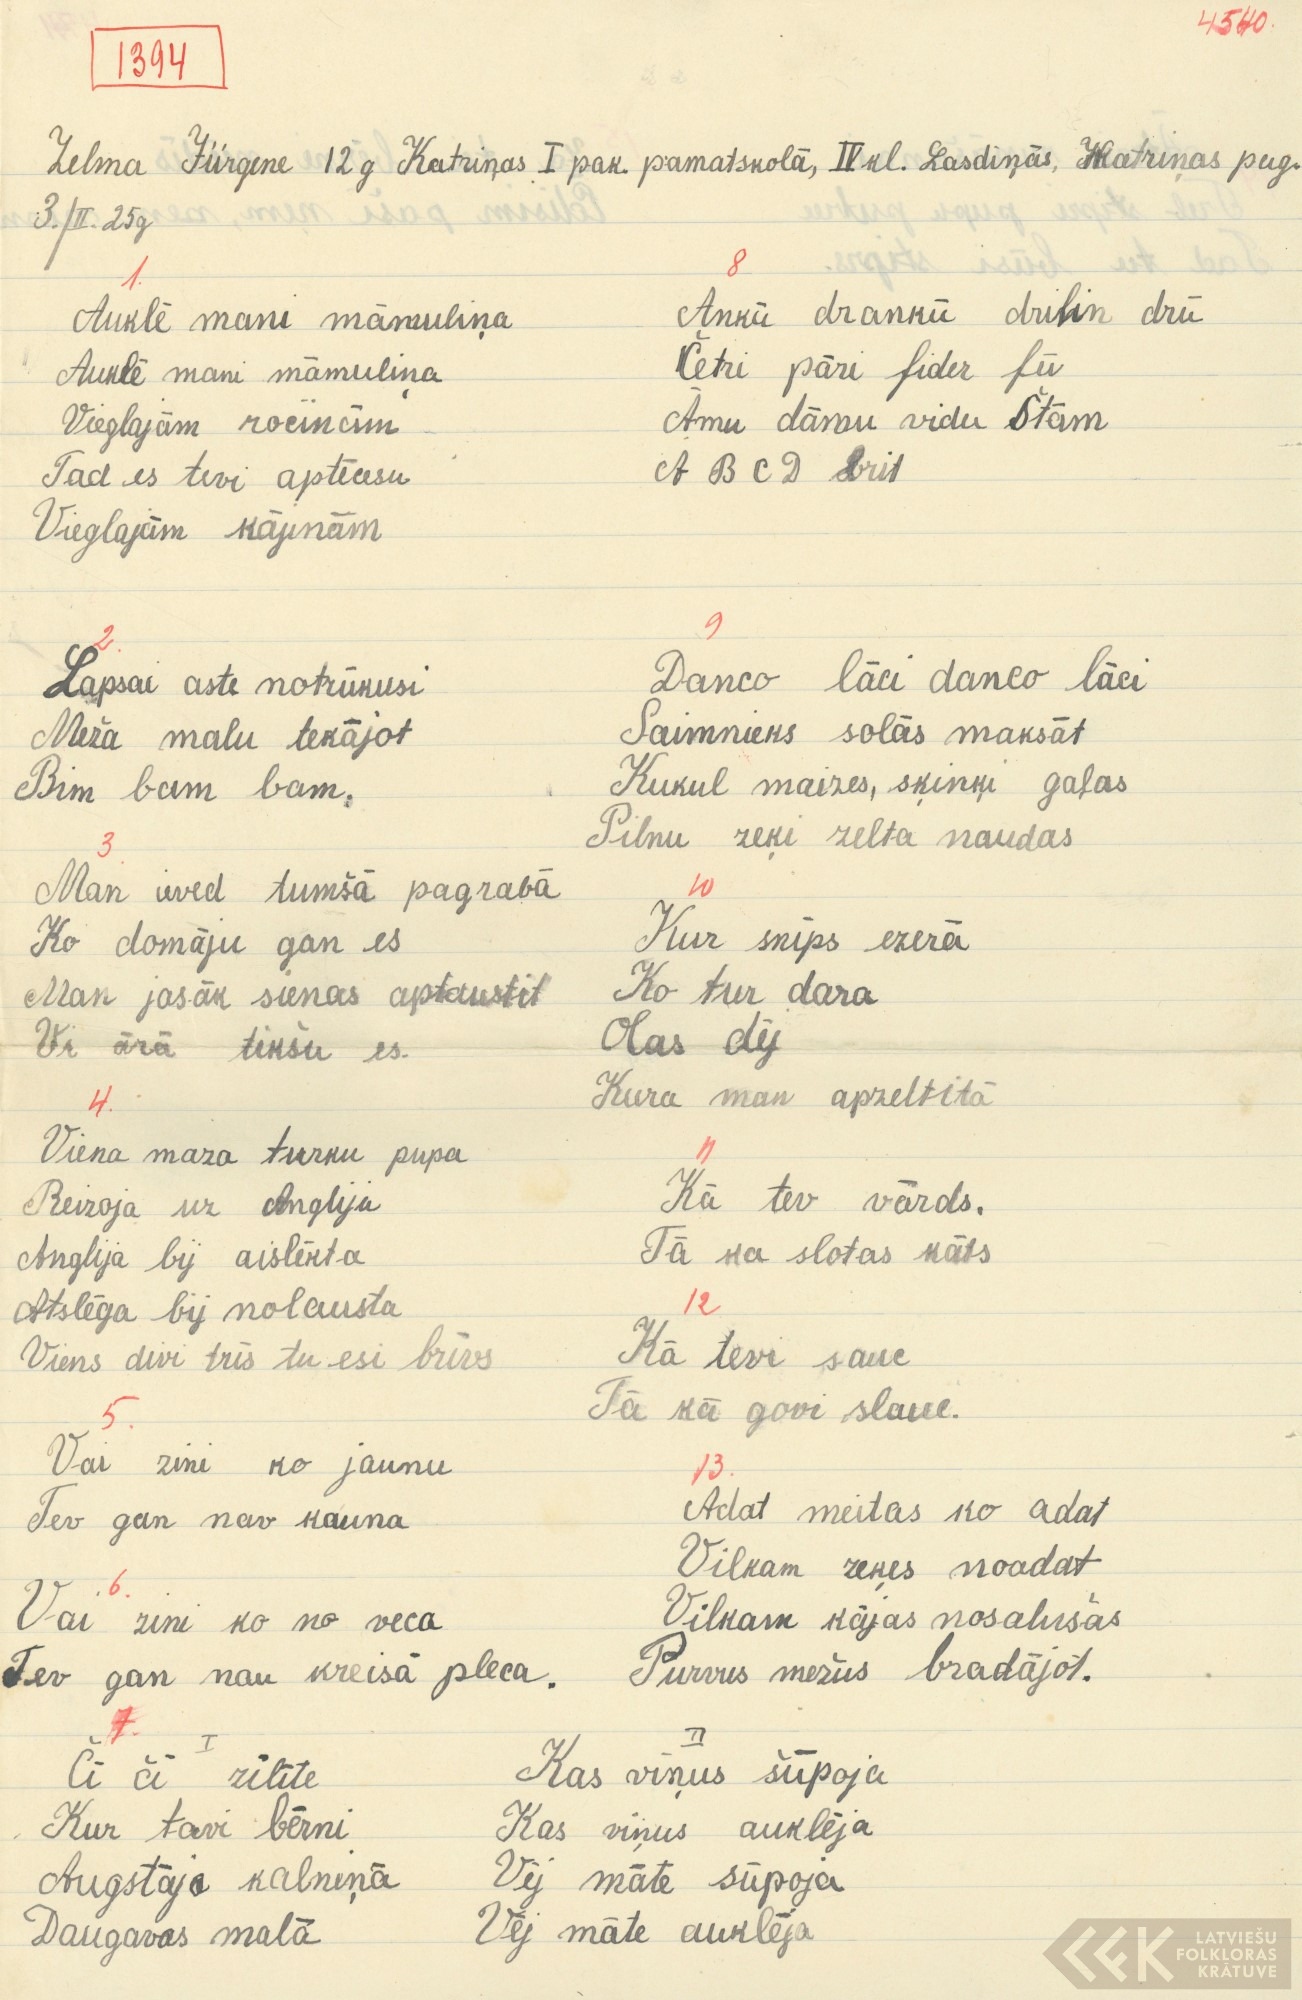 1394
4540.
Zelma Jürgene 12 g Katriņas I pak. pamatskolā, IV kl. Lasdiņās, Katriņas pag.
3./II. 25g
1.
Auklē mani māmuliņa
Auklē mani māmuliņa
Vieglajām rociņām
Tad es tevi aptecesu
Vieglajām kājinām
2.
Lapsai aste notrūkusi
Meža malu tekājot
Bim bam bam.
3
Man ieved tumšā pagrabā
Ko domāju gan es
Man jasāk sienas aptaustit
Vi ārā tikšu es.
4.
Viena maza turku pupa
Reizoja uz Anglija
Anglija bij aislēkta
Atslēga bij nolausta
Viens divi trīs tu esi brīvs
5.
Vai zini ko jaunu
Tev gan nav kauna
6.
Vai zini ko no veca
Tev gan nau kreisā pleca.
7.
I
Čī čī zīlīte
Kur tavi bērni
Augstāja kalneņā
Daugavas malā
II
Kas viņus šūpoja
Kas viņus auklēja
Vēj māte sūpoja
Vēj māte auklēja
8
Ankū drankū drilin drū
Četri pāri fider fū
Āmu dāmu vidu štām
A B C D brit
9
Danco lāci danco lāci
Saimnieks solās maksāt
Kukul maizes, sķinķi gaļas
Pilnu zeķi zelta naudas
10
Kur snīps ezerā
Ko tur dara
Olas dēj
Kura man apzeltitā
11
Kā tev vārds.
Tā ka slotas kāts
12
Kā tevi sauc
Tā kā govi slauc.
13.
Adat meitas ko adat
Vilkam zeķes noadat
Vilkam kājas nosalušas
Purvus mežus bradājot.
LATVIEŠU
FOLKLORAS
KRĀTUVE